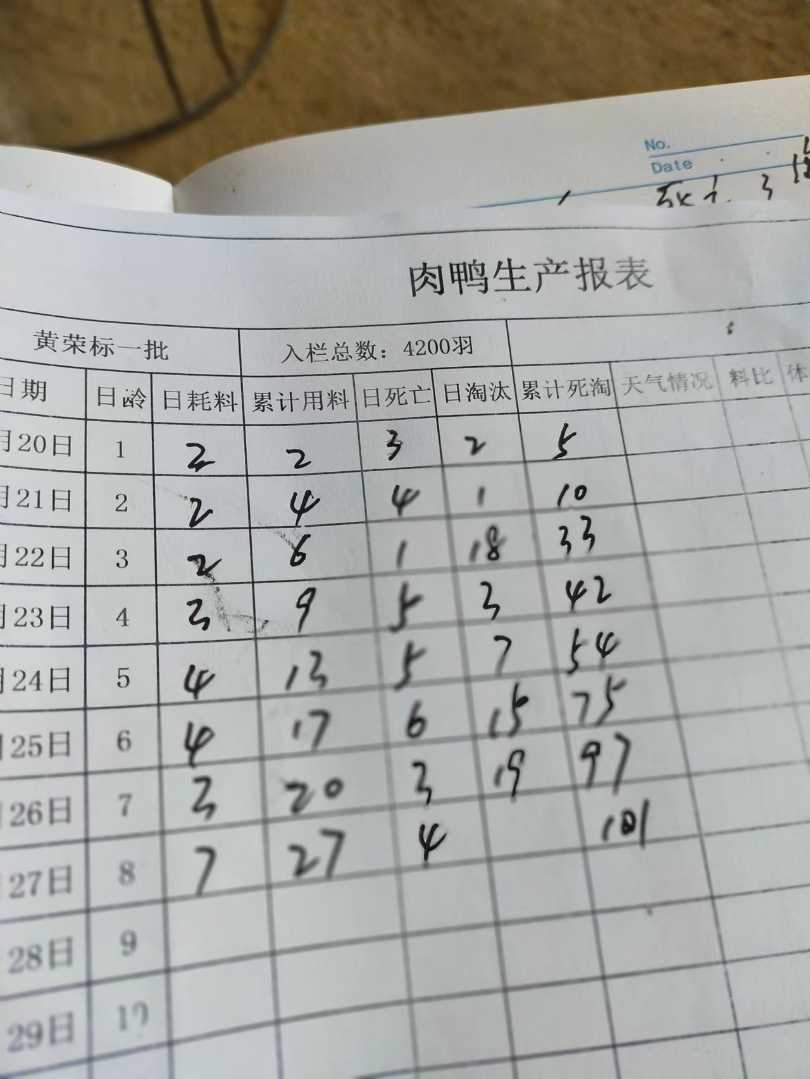 No.
Date
肉鸭生产报表
黄荣标一批 入栏总数：4200羽
日期 日龄 日耗料 累计用料 日死亡 日淘汰 累计死淘 天气情况 料比 体
月20日 1 2 2 3 2 5
月21日 2 2 4 4 1 10
月22日 3 2 6 1 18 33
月23日 4 3 9 5 3 42
月24日 5 4 13 5 7 54
25日 6 4 17 6 15 75
26日 7 3 20 3 19 97
27日 8 7 27 4 101
28日 9
29日 10